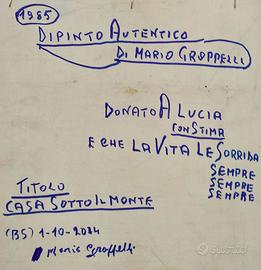 1985
DIPINTO AUTENTICO
DI MARIO GROPPELLI
DONATO A LUCIA
CON STIMA
E CHE LA VITA LE SORRIDA
SEMPRE
SEMPRE
SEMPRE
TITOLO
CASA SOTTO IL MONTE
(BS) 1-10-2024
Mario Groppelli
subito